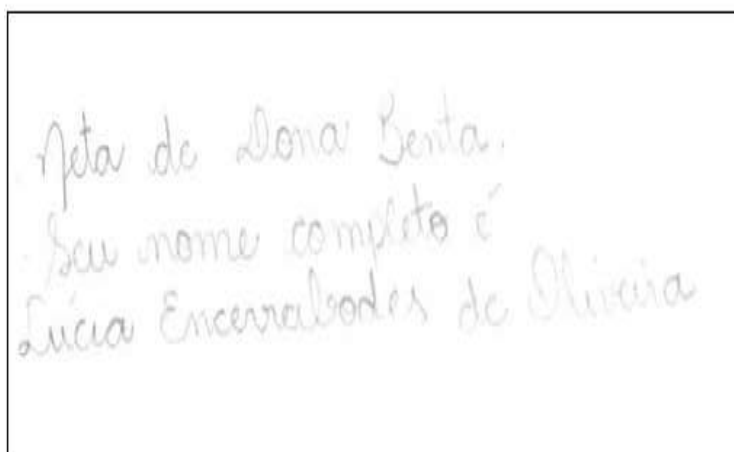 Neta de Dona Benta.
Seu nome completo é
Lúcia Encerrabodes de Oliveira